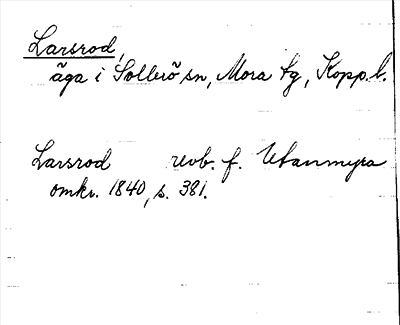 Larsrod,
äga i Sollerö sn, Mora tg, Kopp. l.
Larsrod revb. f. Utanmyra
omkr. 1840, s. 381.